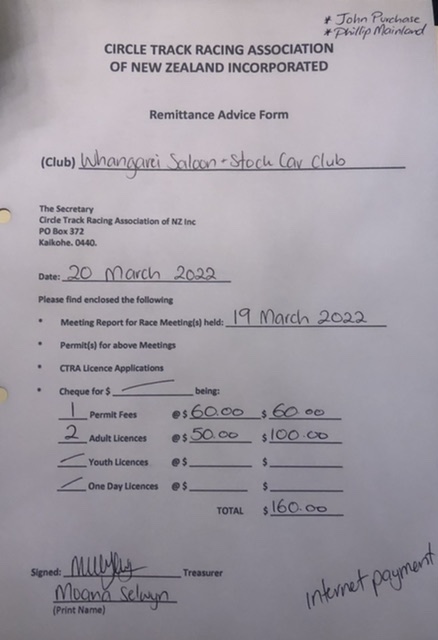 * John Purchase
* Phillip Mainland
CIRCLE TRACK RACING ASSOCIATION
OF NEW ZEALAND INCORPORATED
Remittance Advice Form
(Club) Whangarei Saloon + Stock Car Club
The Secretary
Circle Track Racing Association of NZ Inc
PO Box 372
Kaikohe. 0440.
Date: 20 March 2022
Please find enclosed the following
• Meeting Report for Race Meeting(s) held: 19 March 2022
• Permit(s) for above Meetings
• CTRA Licence Applications
• Cheque for $ being:
1 Permit Fees @ $ 60.00 $ 60.00
2 Adult Licences @ $ 50.00 $ 100.00
Youth Licences @ $ $
One Day Licences @ $ $
TOTAL $ 160.00
Signed: Treasurer
Moana Selwyn
(Print Name)
Internet payment